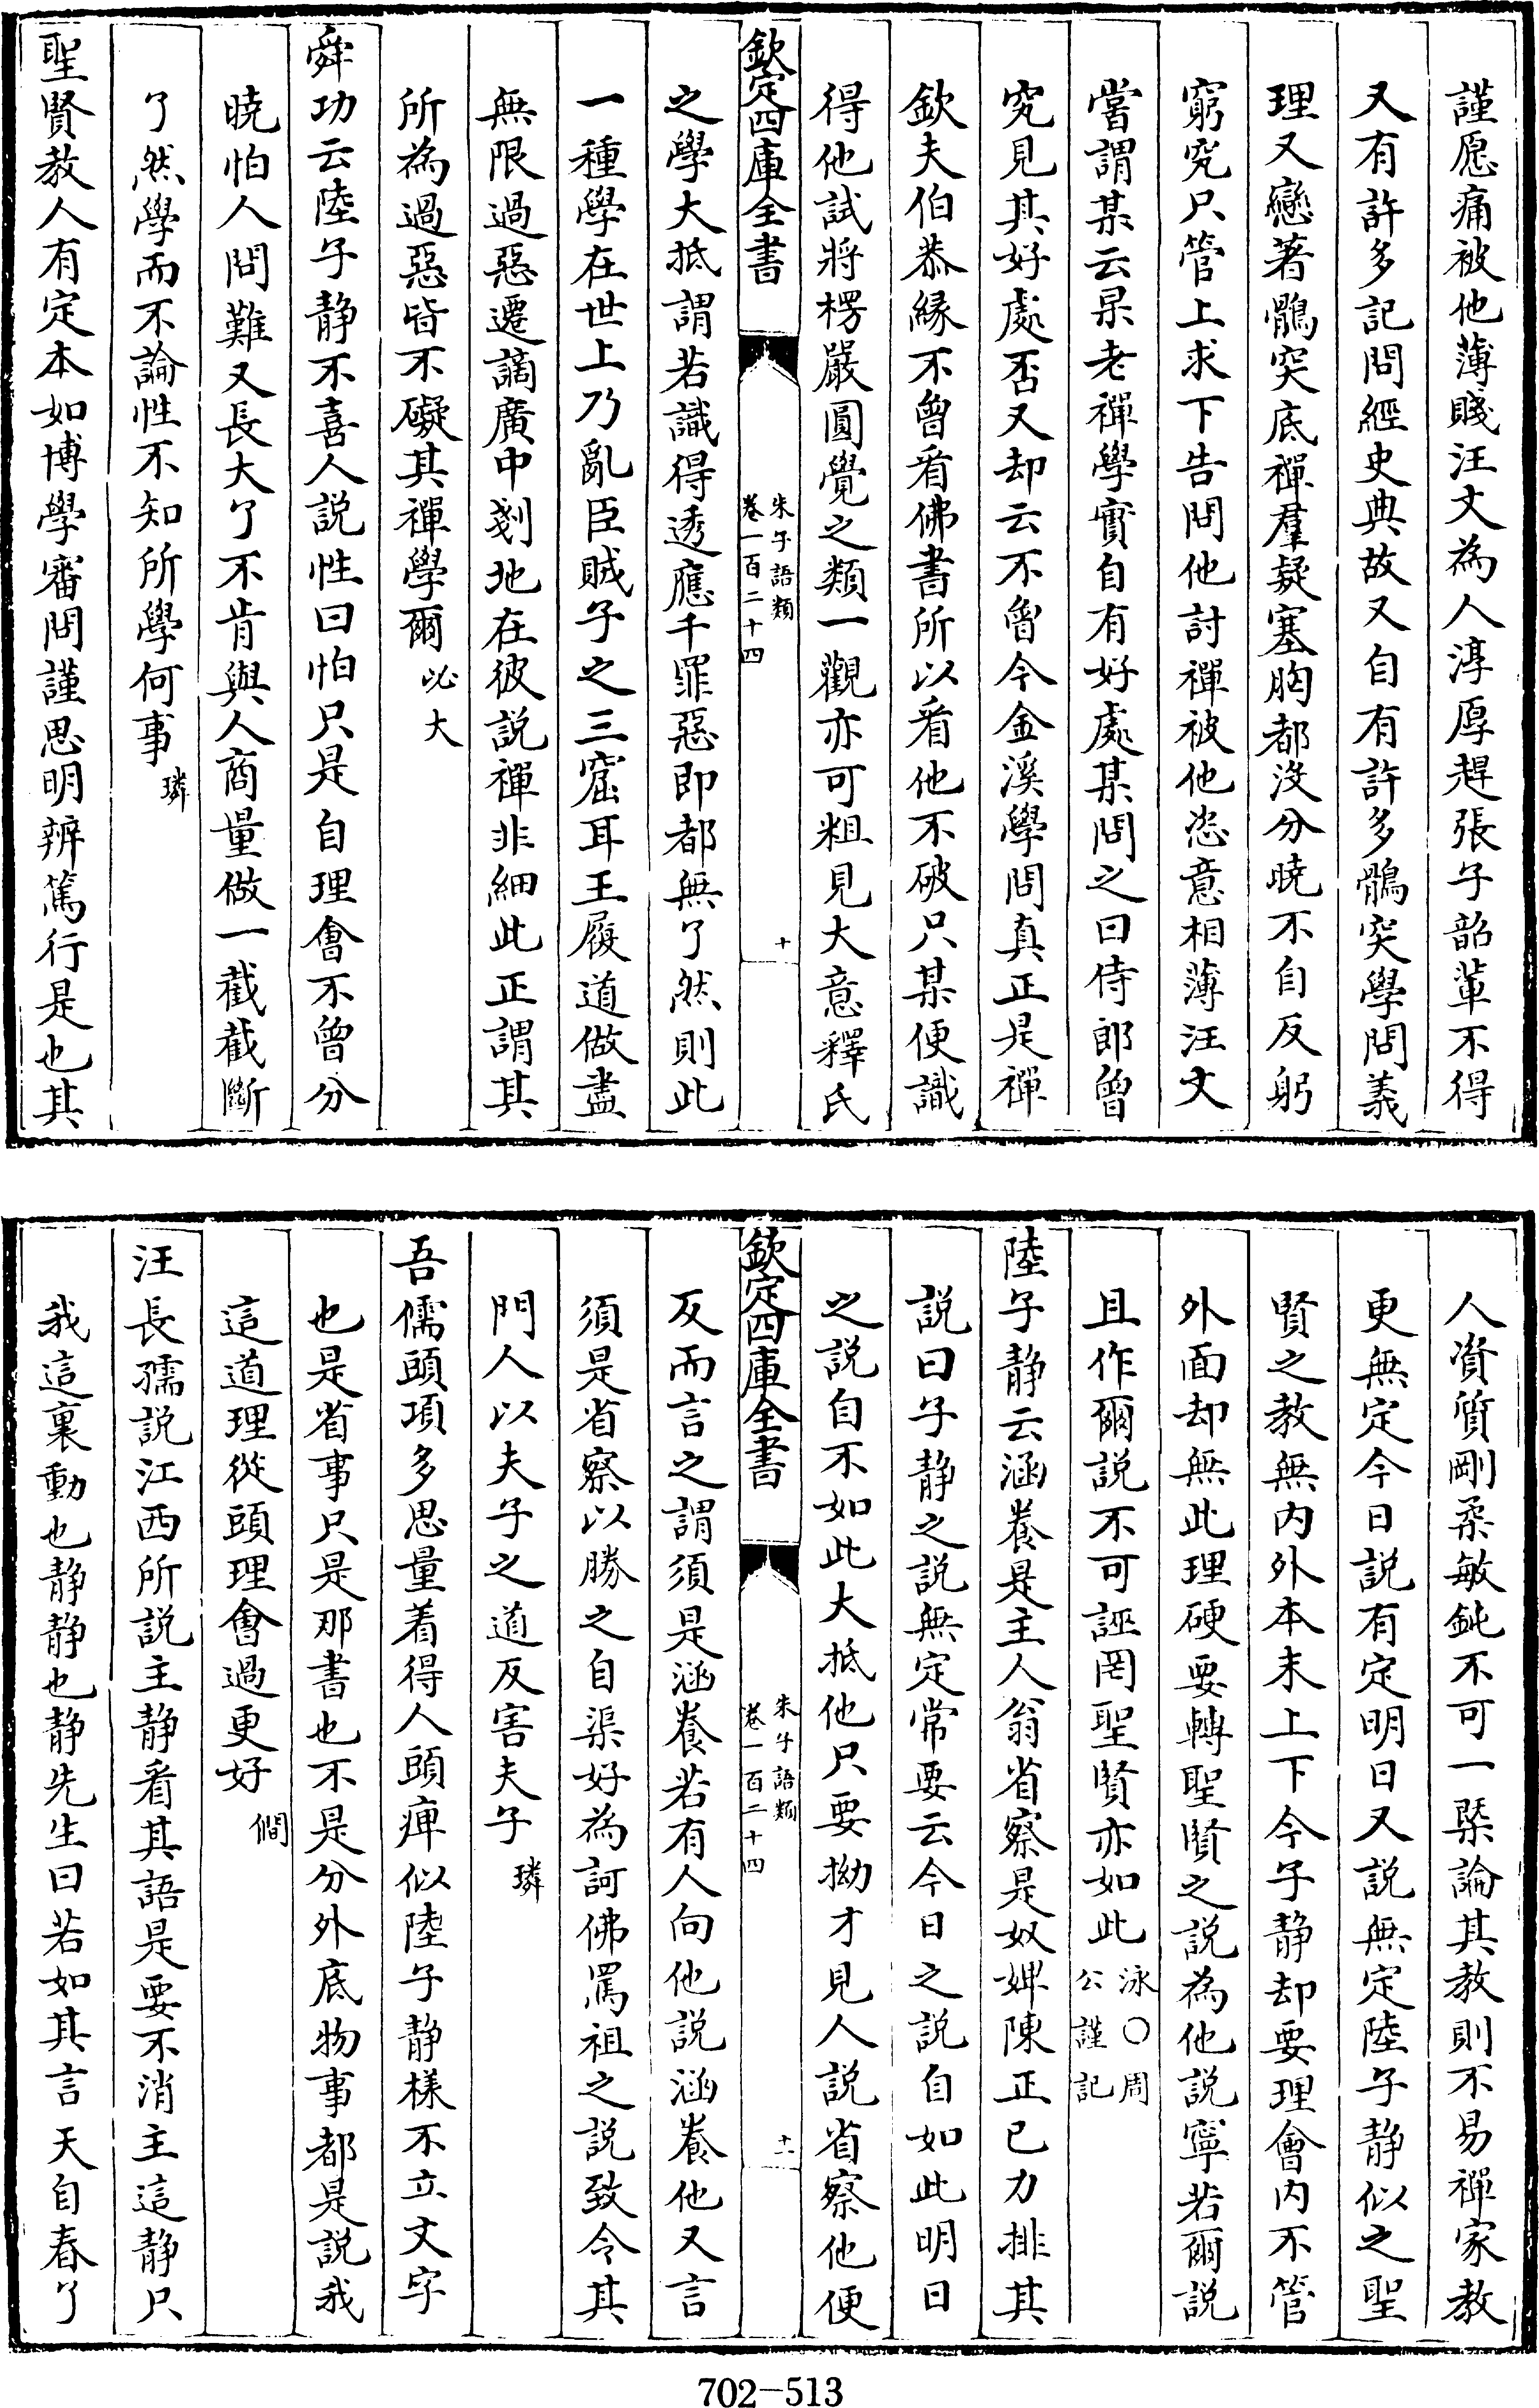 謹愿痛被他薄賤汪丈為人淳厚趕張子韶輩不得
又有許多記問經史典故又自有許多鶻突學問義
理又戀著鶻突底禪羣疑塞胸都沒分曉不自反躬
窮究只管上求下告問他討禪被他恣意相薄汪丈
嘗謂某云杲老禪學實自有好處某問之曰侍郎曾
究見其好處否又却云不曾今金溪學問真正是禪
欽夫伯恭緣不曾看佛書所以看他不破只某便識
得他試將楞嚴圓覺之類一觀亦可粗見大意釋氏
欽定四庫全書
朱子語類
卷一百二十四
十
之學大抵謂若識得透應千罪惡即都無了然則此
一種學在世上乃亂臣賊子之三窟耳王履道做盡
無限過惡遷謫廣中剗地在彼説禪非細此正謂其
所為過惡皆不礙其禪學爾必大
舜功云陸子静不喜人説性曰怕只是自理會不曾分
曉怕人問難又長大了不肯與人商量做一截截斷
了然學而不論性不知所學何事璘
聖賢教人有定本如博學審問謹思明辨篤行是也其
人資質剛柔敏鈍不可一槩論其教則不易禪家教
更無定今日説有定明日又説無定陸子静似之聖
賢之教無内外本末上下今子静却要理會内不管
外面却無此理硬要轉聖賢之説為他説寧若爾説
且作爾説不可誣罔聖賢亦如此泳〇周公謹記
陸子静云涵養是主人翁省察是奴婢陳正己力排其
説曰子静之説無定常要云今日之説自如此明日
之説自不如此大抵他只要拗才見人説省察他便
欽定四庫全書
朱子語類
卷一百二十四
十一
反而言之謂須是涵養若有人向他説涵養他又言
須是省察以勝之自渠好為訶佛罵祖之説致令其
門人以夫子之道反害夫子璘
吾儒頭項多思量着得人頭痺似陸子静樣不立文字
也是省事只是那書也不是分外底物事都是説我
這道理從頭理會過更好僩
汪長孺説江西所説主静看其語是要不消主這静只
我這裏動也静静也静先生曰若如其言天自春了
702-513